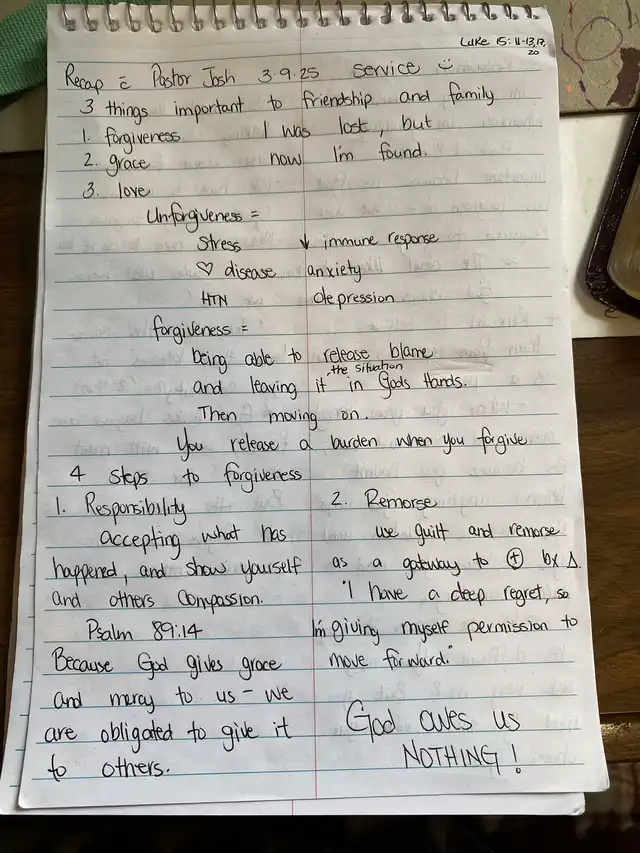 Luke 15:11-13, 17,
20
Recap = Pastor Josh 3.9.25 service
3 things important to friendship and family
1. forgiveness I was lost, but
2. grace now I'm found.
3. love
Unforgiveness =
Stress ↓ immune response
♡ disease anxiety
HTN depression
forgiveness =
being able to release blame
the situation
and leaving it in God's Hands.
Then moving on.
You release a burden when you forgive
4 steps to forgiveness
1. Responsibility
accepting what has
happened, and show yourself
and others compassion.
Psalm 89:14
Because God gives grace
and mercy to us - we
are obligated to give it
to others.
2. Remorse
use guilt and remorse
as a gateway to ⊕ bx Δ
"I have a deep regret, so
I'm giving myself permission to
move forward."
God owes us
NOTHING!